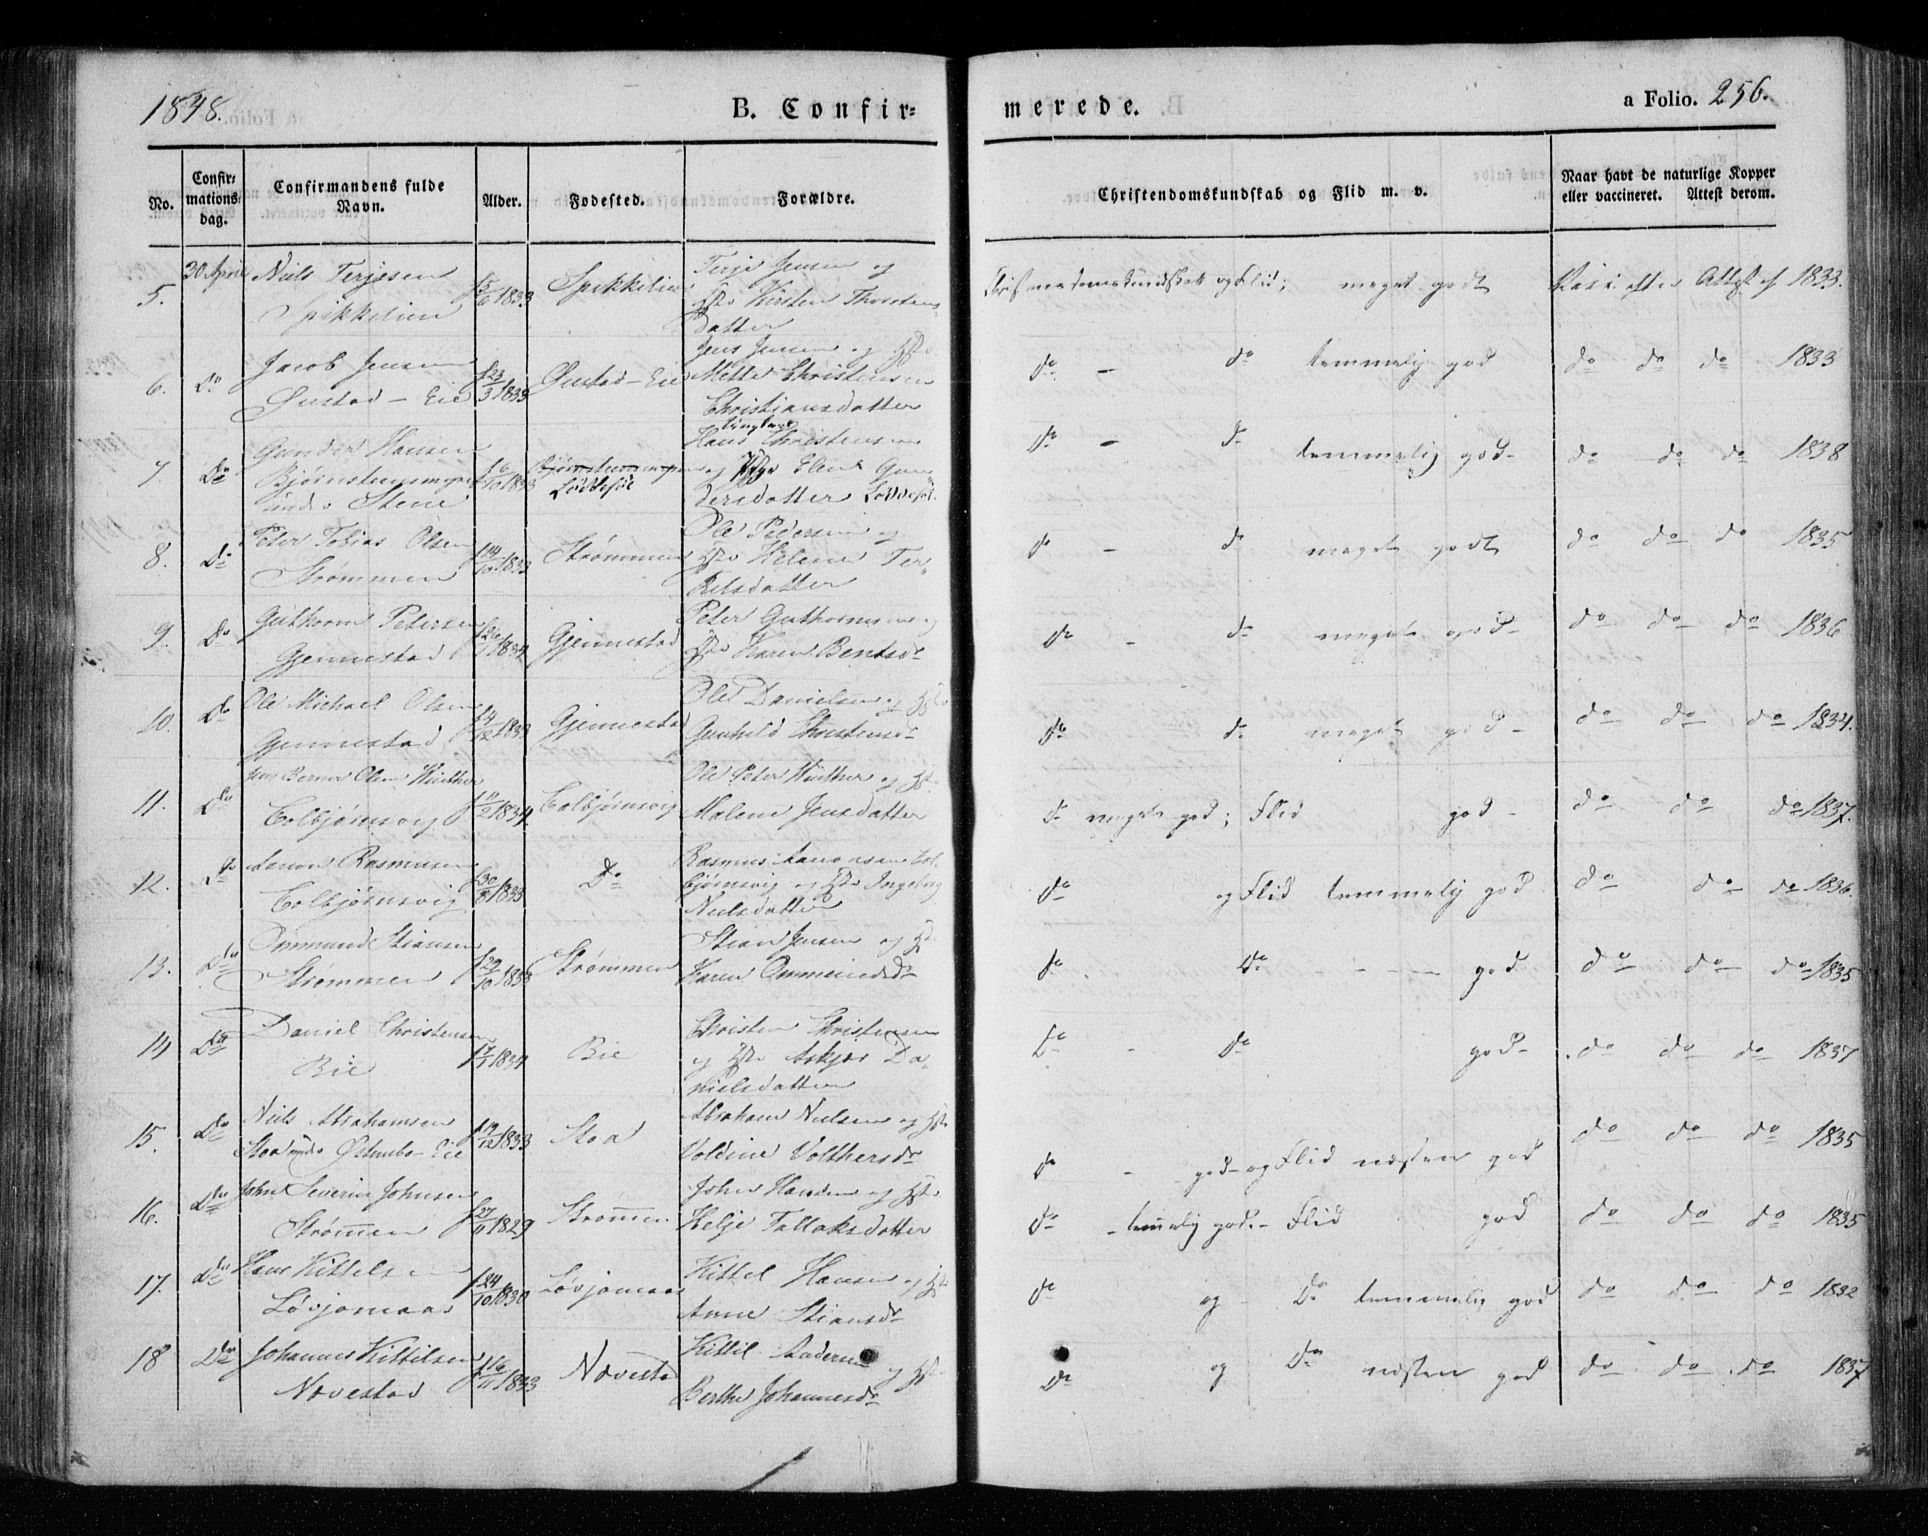 1848.
B. Confir=
merede.
a Folio. 256.
No.
Confir=
mations=
dag.
Confirmandens fulde
Navn.
Alder.
Fødested.
Forældre.
Christendomskundskab og Flid m. v.
Naar havt de naturlige Kopper
eller vaccineret. Attest derom.
5. 30 April Niels Terjesen
Spikkelien
1833 Spikkelien
Terje Jensen og
Kirsten Thorstens
datter
og Flid; meget godt
Attest af 1833.
6. Do Jacob Jensen
Øustad - Eie
23/3 1833 Øustad - Eie
Jens Jensen og
Mette Christensen
Christiansdatter
do - do temmelig god
do do do 1833
7. Do Gunder Hansen
Bjørnstensmyren
under Stene
6/10 1833
Løddesøl
Hans Christensen
og Elen Gun
dersdatter Løddesøl.
do - do temmelig god -
do do do 1838
8. Do Peter Tobias Olsen
Strømmen
14/10 1833 Strømmen
Ole Pedersen og
Helene Ter
kelsdatter
do - do meget godt
do do do 1835
9. Do Guthorm Petersen
Gjennestad
1834 Gjennestad
Peter Guthormsen og
Karen Bentsdr
do - do meget god -
do do do 1836
10. Do Ole Michael Olsen
Gjennestad
1833 Gjennestad
Ole Danielsen og
Gunhild Christensdr
do do meget god -
do do do 1834.
11. Do Jens Berner Olsen
Colbjørnsvig
1834. Colbjørnsvig
Ole Peter
Malene Jensdatter
do meget god; Flid god -
do do do 1837.
12. Do Aanon Rasmusen
Colbjørnsvig
1833 Do
Rasmus Aanonsen Col
bjørnsvig og Ingeborg
Nielsdatter
do og Flid temmelig god
do do do 1836.
13. Do Ommund Stiansen
Strømmen
29/10 1833 Strømmen
Stian Jensen og
Karen Ommundsdr
do Do - - - god
do do do 1835
14 Do Daniel Christensen
Bie
1834 Bie
Christen Christensen
og Askjær Da
nielsdatter
Do - Do god -
do do do 1837
15. Do Niels Abrahamsen
Stoa under Eie
19/12 1833 Stoa
Abraham Nielsen og
Voldine Volthersdr
do - god - og Flid næsten god
do do do 1835
16. Do John Severin Johnsen
Strømmen
1829 Strømmen
John Hansen og
Helje Tallaksdatter
do - temelig god. - Flid god
do do do 1835
17. Do Hans Kittelsen
Løvjomaas
24/10 1830 Løvjomaas
Kittel Hansen og
Anne Stiansdr
do og - Do temmelig god
do do do 1832
18 Do Johannes Kittilsen
Nævestad
16/11 1833 Nævestad
Kittil Andersen og
Berthe Johannesdr
Do og Do næsten god
do do do 1837